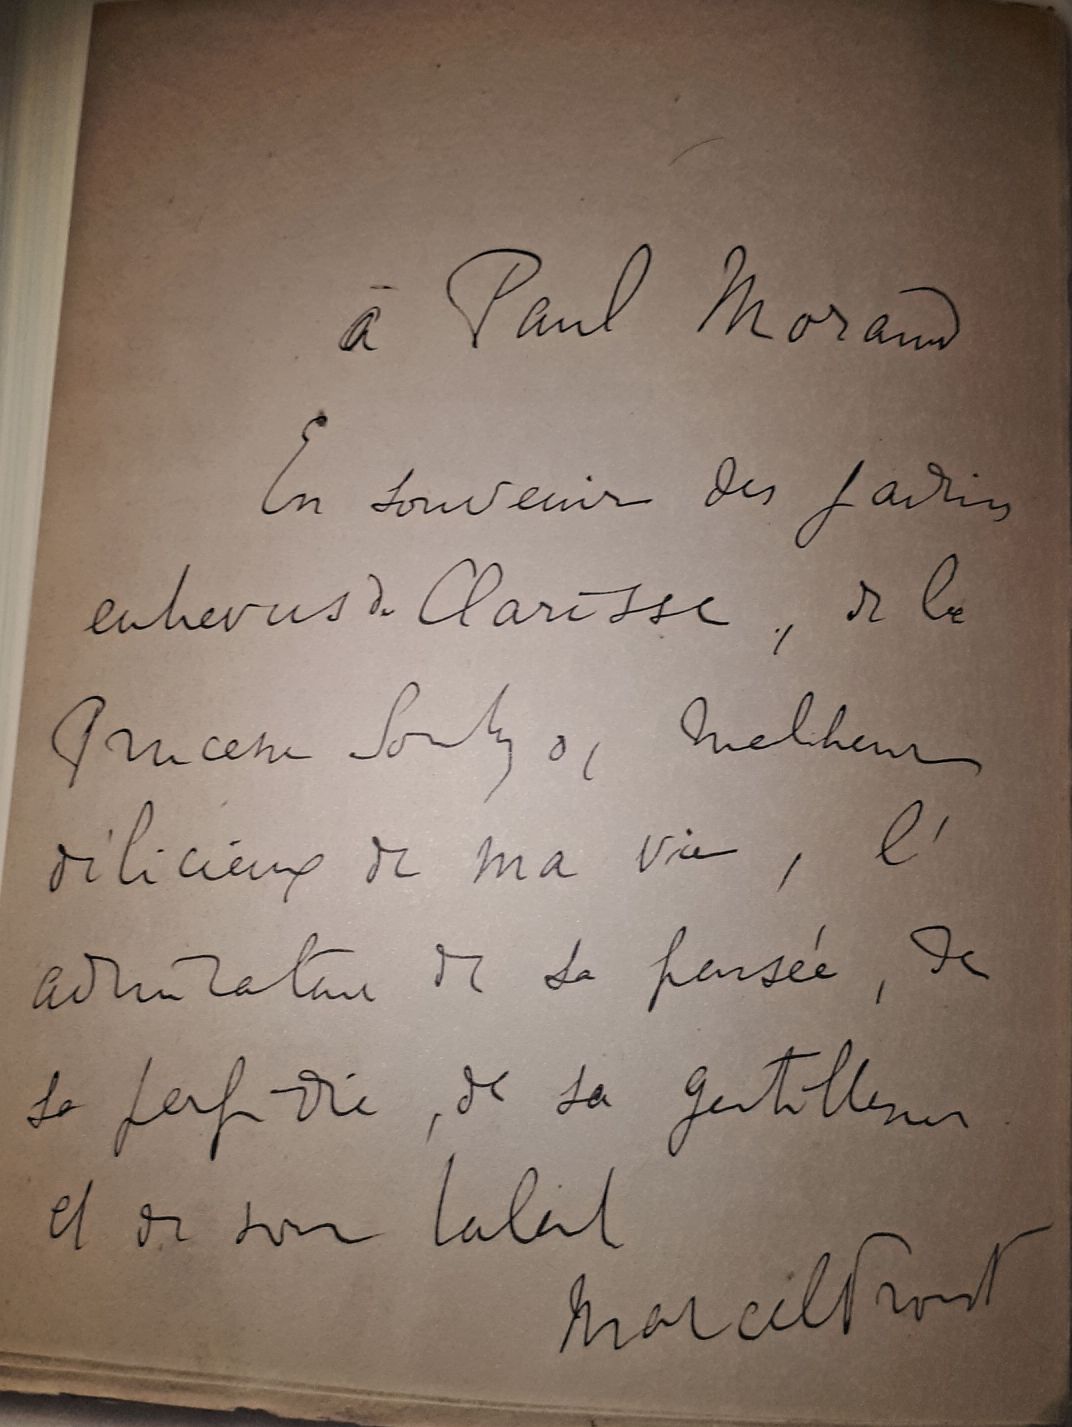 à Paul Morand
En souvenir des jardins
entrevus de Clarisse, de la
Princesse Soutzo, malheur
délicieux de ma vie, l'
admirateur de sa pensée, de
sa perfidie, de sa gentillesse
et de son talent
Marcel Proust